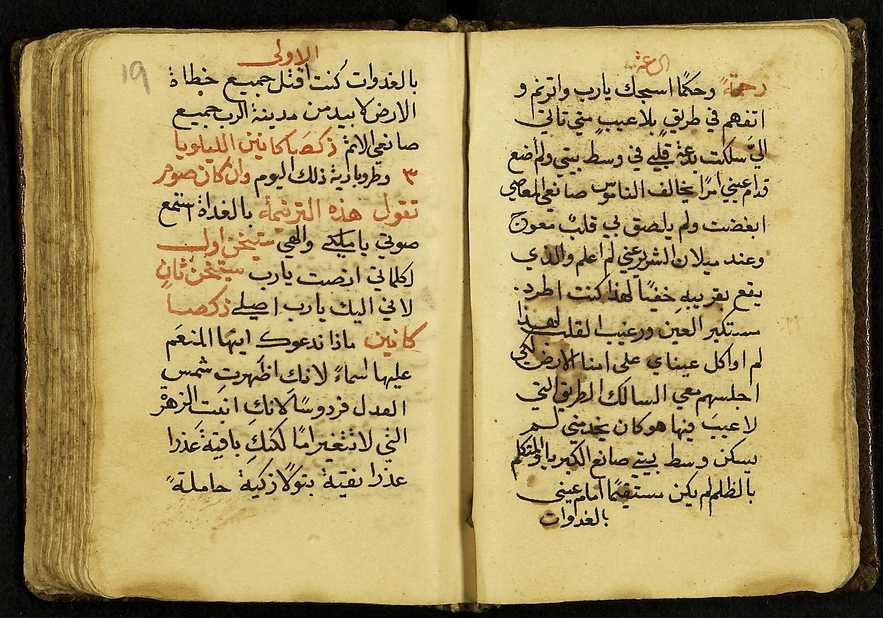 رحمةً وحكمًا اسبحك يارب وارتم و
اتفهم في طريقٍ بلا عيبٍ متي تاتي
اليّ سلكت بدعة قلبي في وسط بيتي ولم اضع
قدام عيني امرًا يخالف الناموس صانعي المعاصي
ابغضت ولم يلصق بي قلبٌ معوج
وعند ميلان الشرير عني لم اعلم والذي
يقع بقريبهِ خفيًا لهذا كنت اطرد:
مستكبر العين ورغيب القلب لهذا
لم اواكل عيناي على امنا الارض لكي
اجلسهم معي السالك الطريق التي
لا عيبَ فيها هو كان يخدمني لم
يسكن وسط بيتي صانع الكبريا والمتكلم
بالظلم لم يكن مستقيمًا امام عيني
بالغدوات
19
الاولى
بالغدوات كنت اقتل جميع خطاة
الارض لابيد من مدينة الرب جميع
صانعي الاثم ذكصا كانين الليلويا
٣ وطروبارية ذلك اليوم وان كان صوم
تقول هذه الترنمة بالغداة استمع
صوتي يا ملكي والهي ستيخن اول
لكلماتي انصت يارب ستيخن ثانٍ
لاني اليك يارب اصلي ذكصا
كانين ماذا ندعوك ايتها المنعم
عليها اسماءً لانك اظهرتِ شمس
العدل فردوسًا لانك انبت الزهرة
التي لا تتغير امًا لكنكِ باقية عذرا
عذرا نقية بتولًا زكية حاملةً